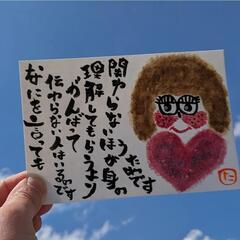 なにを言っても
伝わらない人はいるのです
がんばって
理解してもらうより
関わらないほうが身の
ためです
に